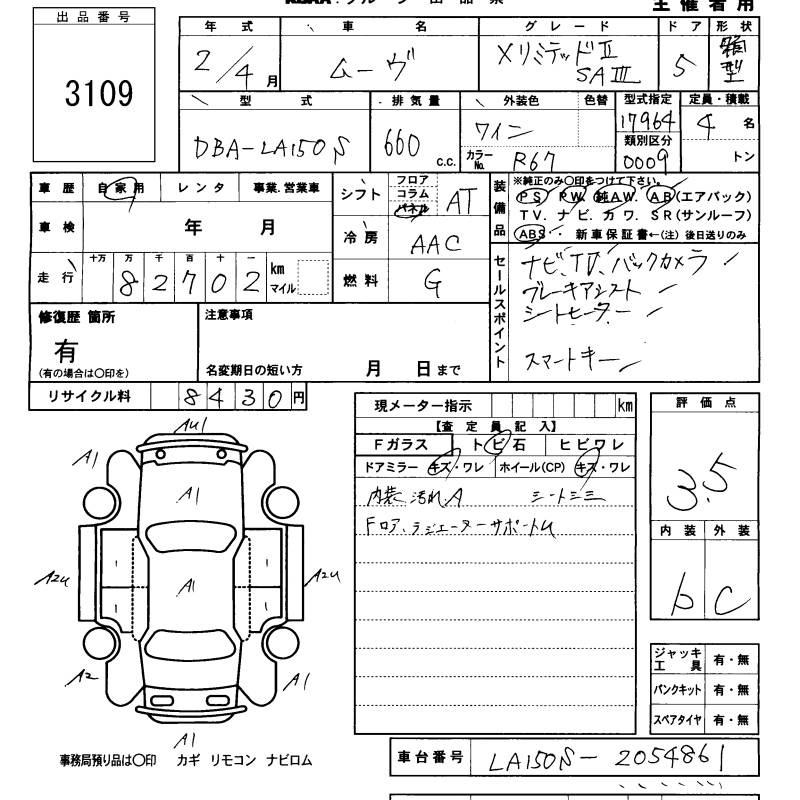 主催者用
出品番号
3109
年式 車名 グレード ドア 形状
2/4月 ムーヴ XリミテッドⅡ SAⅢ 5 箱型
型式 排気量 外装色 色替 型式指定 定員・積載
DBA-LA150S 660 c.c. ワイン 17964 4名
カラーNo. R67 類別区分 0009 トン
車歴 自家用 レンタ 事業.営業車
車検 年 月
走行 十万 万 千 百 十 一
82702 km マイル
シフト フロア コラム パネル AT
冷房 AAC
燃料 G
装備品
※純正のみ〇印をつけて下さい。
PS. PW. 純AW. AB(エアバック)
TV. ナビ. カワ. SR(サンルーフ)
ABS. 新車保証書←(注) 後日送りのみ
セールスポイント
ナビ、TV、バックカメラ
ブレーキアシスト
シートヒーター
スマートキー
修復歴 箇所
有
(有の場合は〇印を)
注意事項
名変期日の短い方 月 日まで
リサイクル料 8430円
現メーター指示 km
【査定員記入】
Fガラス トビ石 ヒビワレ
ドアミラー キズ・ワレ ホイール(CP) キズ・ワレ
内装 汚れA シートシミ
Fロア、ラジエーターサポートU
評価点
3.5
内装 外装
b C
ジャッキ工具 有・無
パンクキット 有・無
スペアタイヤ 有・無
AU1
A1
A1
A2U A1 A2U
A2 A1
A1
事務局預り品は〇印 カギ リモコン ナビロム
車台番号 LA150S-2054861